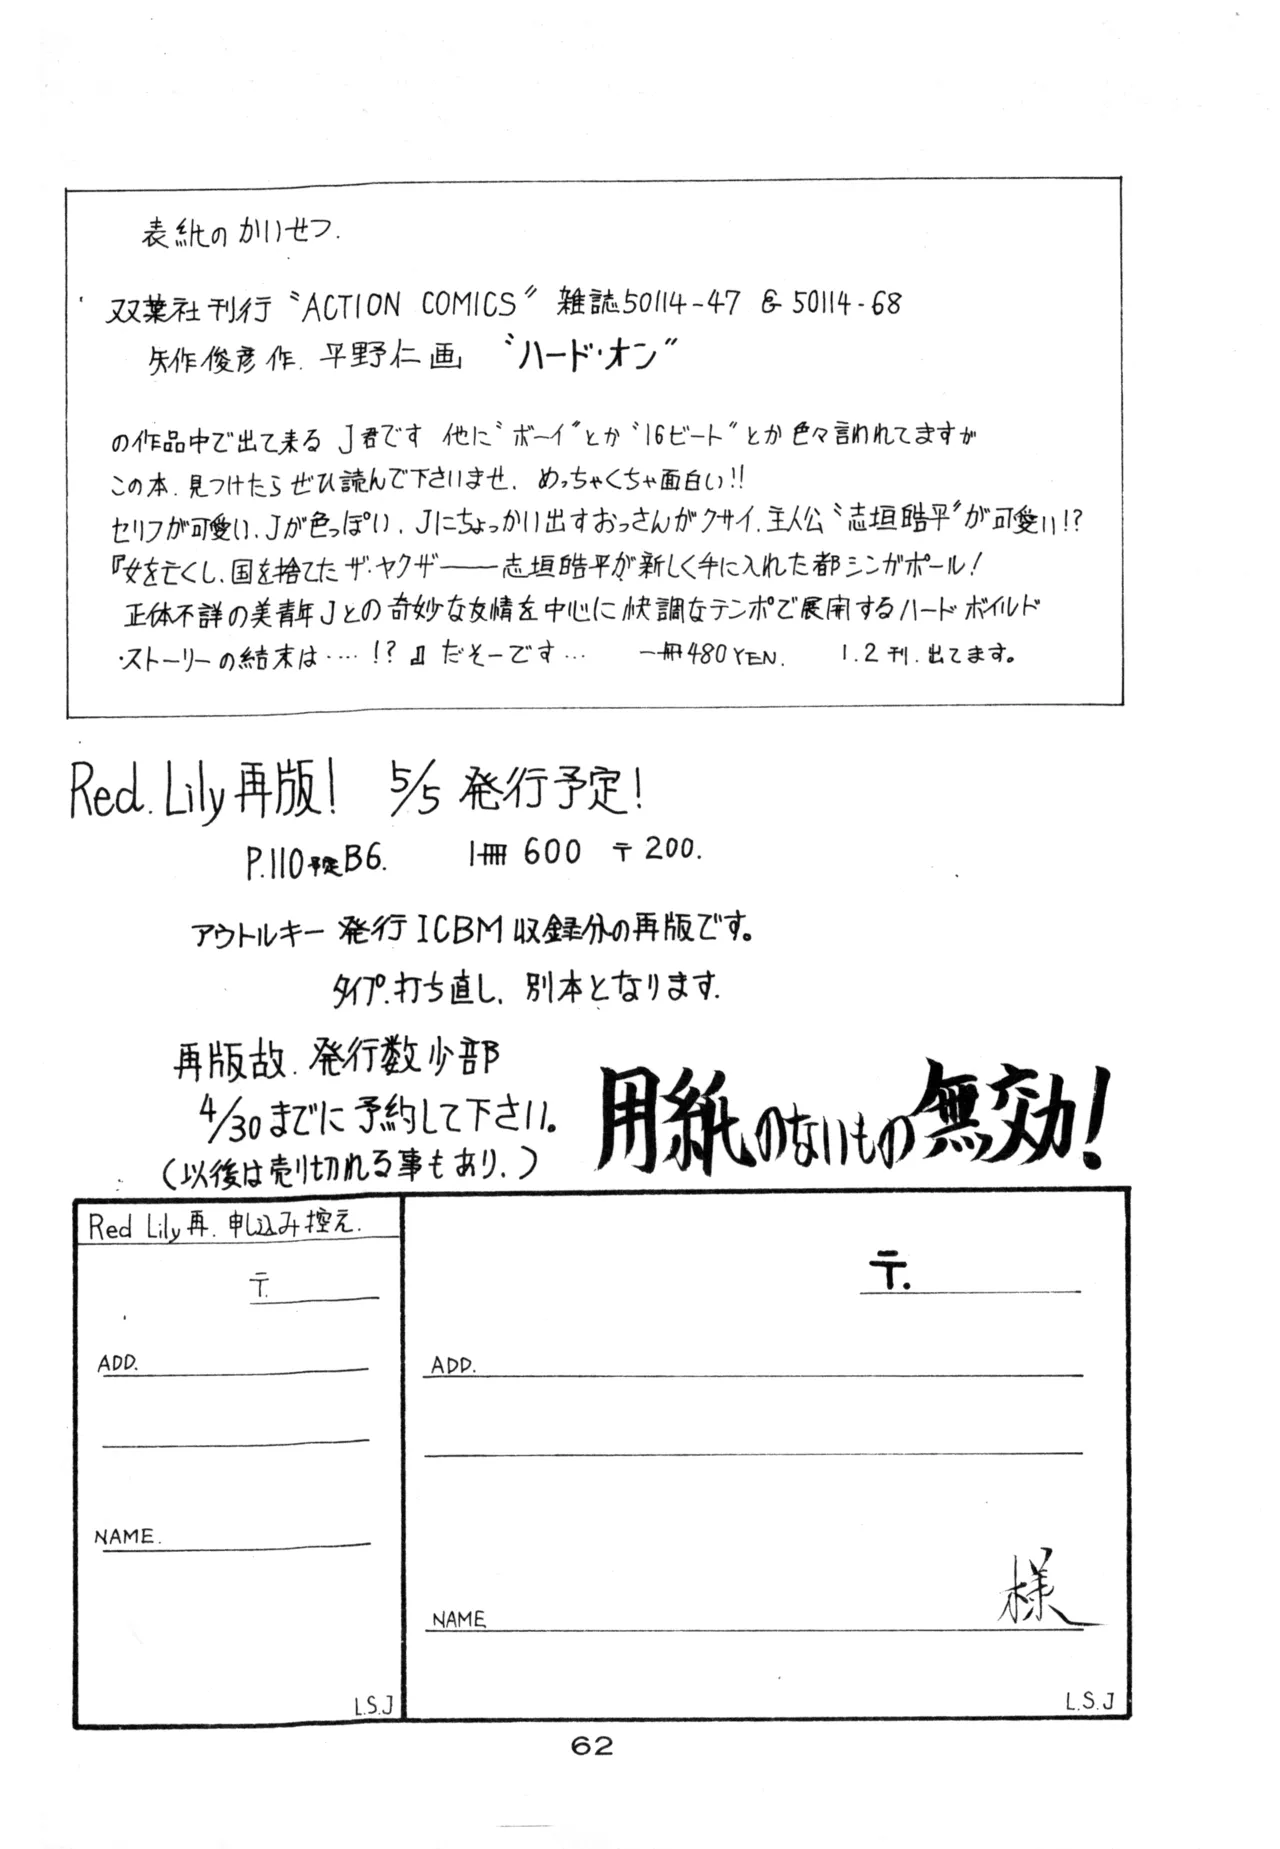 表紙のかいせつ.
双葉社刊行 〝ACTION COMICS〟 雑誌50114-47 & 50114-68
矢作俊彦作. 平野仁画 〝ハード・オン〟
の作品中で出て来る J君です 他に〝ボーイ〟とか〝16ビート〟とか色々言われてますが
この本.見つけたらぜひ読んで下さいませ. めっちゃくちゃ面白い!!
セリフが可愛い.Jが色っぽい.Jにちょっかい出すおっさんがクサイ.主人公〝志垣晧平〟が可愛い!?
『女を亡くし.国を捨てたザ・ヤクザ――志垣晧平が新しく手に入れた都シンガポール!
正体不詳の美青年Jとの奇妙な友情を中心に快調なテンポで展開するハードボイルド
・ストーリーの結末は‥‥!?』だそーです… 一冊480YEN. 1.2刊.出てます。
Red.Lily再版! 5/5 発行予定!
P.110予定B6. 1冊 600 〒200.
アウトルキー 発行ICBM収録分の再版です。
タイプ.打ち直し. 別本となります.
再版故.発行数少部
4/30までに予約して下さい。
(以後は売り切れる事もあり.)
用紙のないもの無効!
Red Lily再.申し込み控え.
〒.
ADD.
NAME.
L.S.J
〒.
ADD.
NAME 様
L.S.J
62